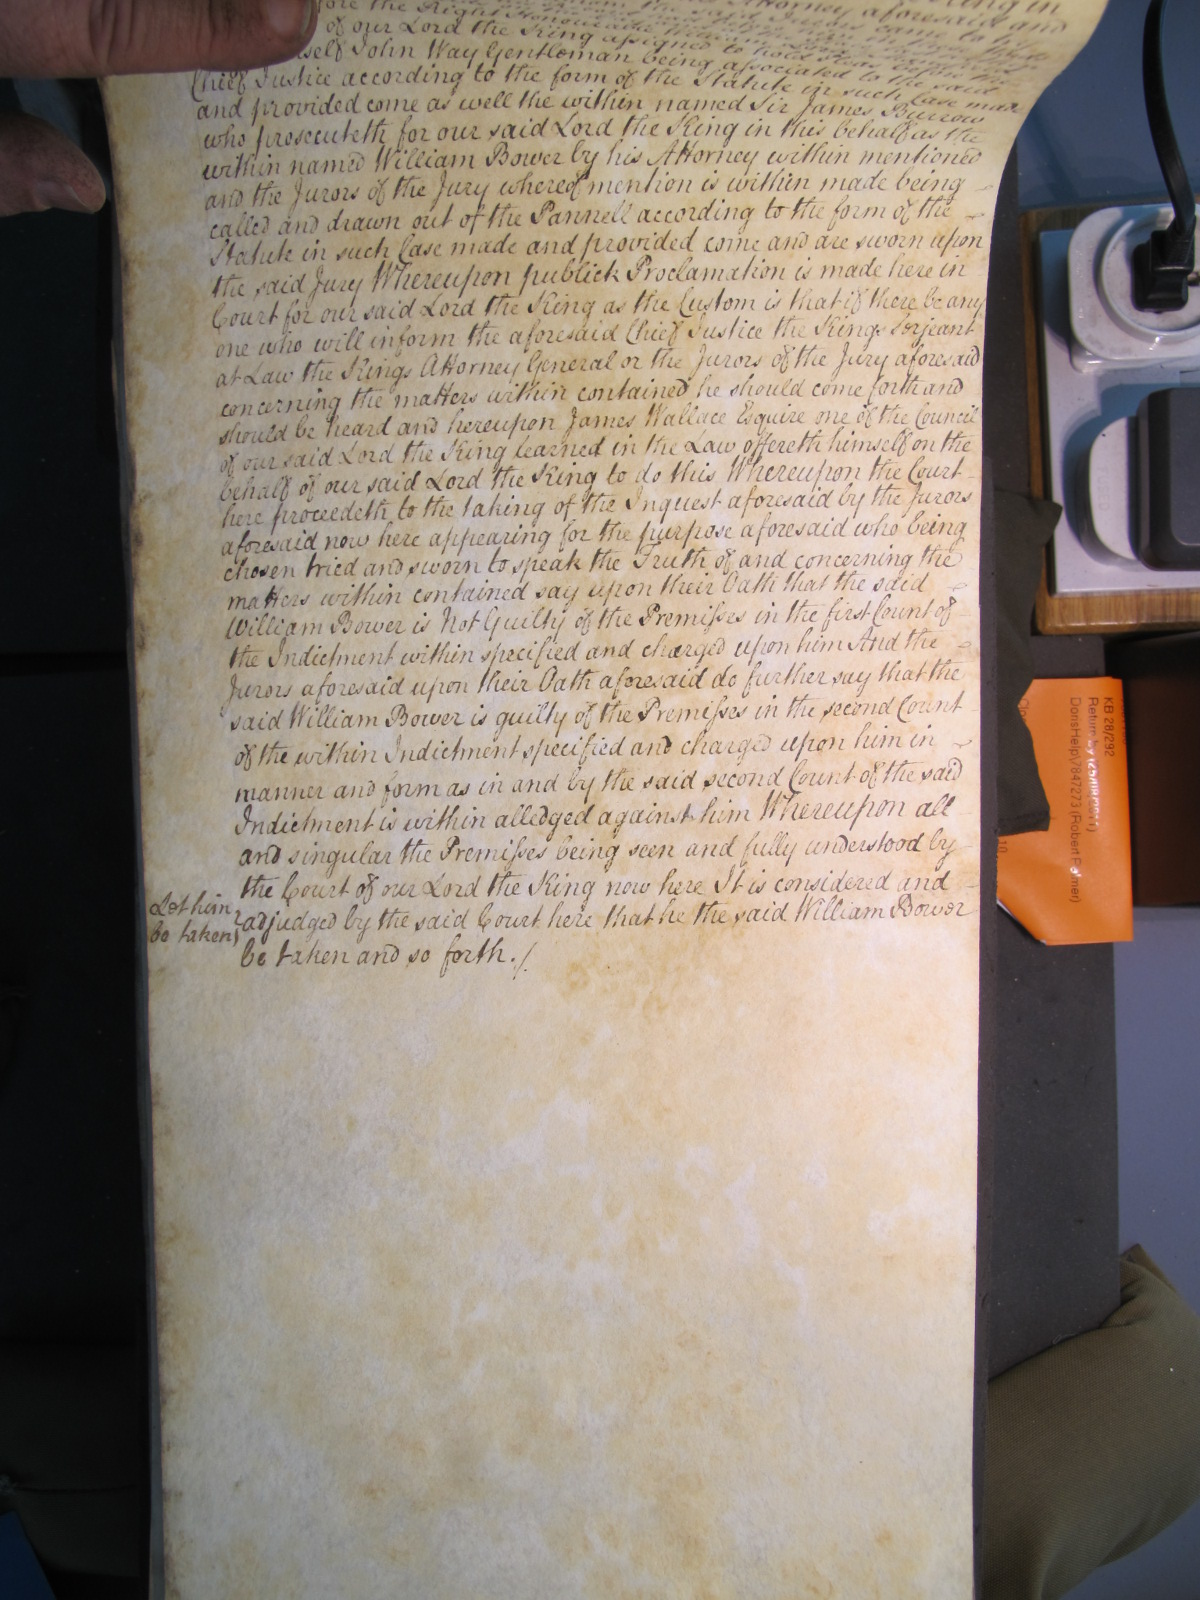 Attorney aforesaid and
fore the Right Honourable William
of our Lord the King assigned to hold Pleas before the
self John Way Gentleman being associated to the said
Chief Justice according to the form of the Statute in such Case made
and provided come as well the within named Sir James Burrow
who prosecuteth for our said Lord the King in this behalf as the
within named William Bower by his Attorney within mentioned
and the Jurors of the Jury whereof mention is within made being
called and drawn out of the Pannell according to the form of the
Statute in such Case made and provided come and are sworn upon
the said Jury Whereupon publick Proclamation is made here in
Court for our said Lord the King as the Custom is that if there be any
one who will inform the aforesaid Chief Justice the Kings Serjeant
at Law the Kings Attorney General or the Jurors of the Jury aforesaid
concerning the matters within contained he should come forth and
should be heard and hereupon James Wallace Esquire one of the Council
of our said Lord the King learned in the Law offereth himself on the
behalf of our said Lord the King to do this Whereupon the Court
here proceedeth to the taking of the Inquest aforesaid by the Jurors
aforesaid now here appearing for the purpose aforesaid who being
chosen tried and sworn to speak the Truth of and concerning the
matters within contained say upon their Oath that the said
William Bower is Not Guilty of the Premisses in the first Count of
the Indictment within specified and charged upon him And the
Jurors aforesaid upon their Oath aforesaid do further say that the
said William Bower is guilty of the Premisses in the second Count
of the within Indictment specified and charged upon him in
manner and form as in and by the said second Count of the said
Indictment is within alledged against him Whereupon all
and singular the Premisses being seen and fully understood by
the Court of our Lord the King now here It is considered and
Let him
be taken
adjudged by the said Court here that he the said William Bower
be taken and so forth./
KB 28/292
Return by (25/08/2011)
DorisHelp\7847273 (Robert Palmer)